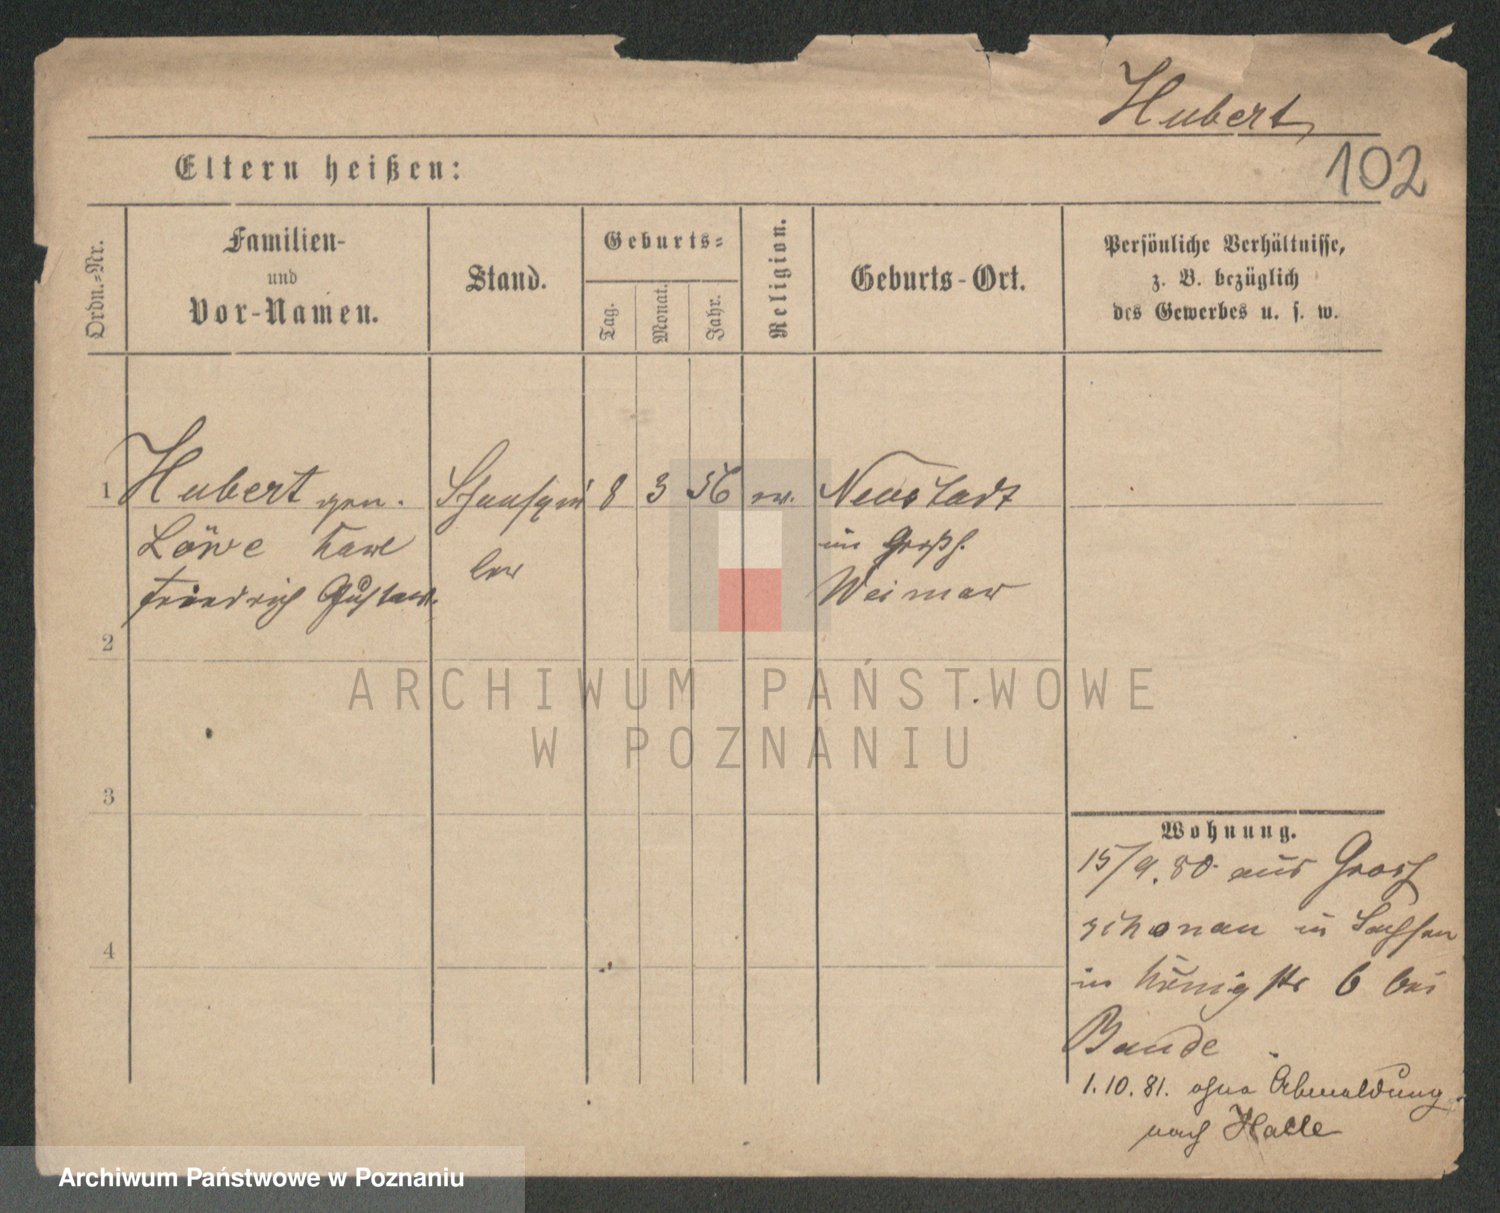 Hubert
102
Eltern heißen:
Ordn.-Nr.
Familien-
und
Vor-Namen.
Stand.
Geburts-
Tag.
Monat.
Jahr.
Religion.
Geburts-Ort.
Persönliche Verhältnisse,
z. B. bezüglich
des Gewerbes u. s. w.
1 Hubert gen. Schauspie 8 3 56 ev. Neustadt
Löwe Karl ler im Großh.
Friedrich Gustav. Weimar
2
3
4
ARCHIWUM PAŃSTWOWE
W POZNANIU
Wohnung.
15/9.80 aus Gross
schonau in Sachsen
in Königstr 6 bei
Baude
1.10.81. ohne Abmeldung
nach Halle
Archiwum Państwowe w Poznaniu